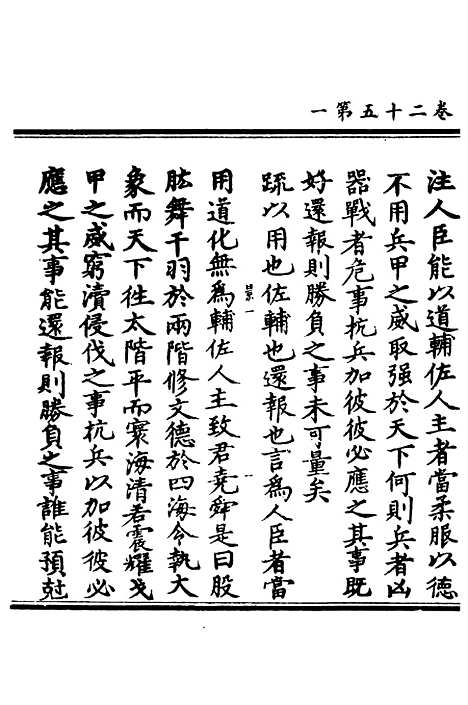 卷二十五第一
注人臣能以道輔佐人主者當柔服以德
不用兵甲之威取强於天下何則兵者凶
器戰者危事抗兵加彼彼必應之其事旣
好還報則勝負之事未可量矣
疏以用也佐輔也還報也言爲人臣者當
用道化無爲輔佐人主致君堯舜是曰股
景一
肱舞干羽於兩階修文德於四海令執大
象而天下徃太階平而寰海清若震耀戈
甲之威窮瀆侵伐之事抗兵以加彼彼必
應之其事能還報則勝負之事誰能預尅